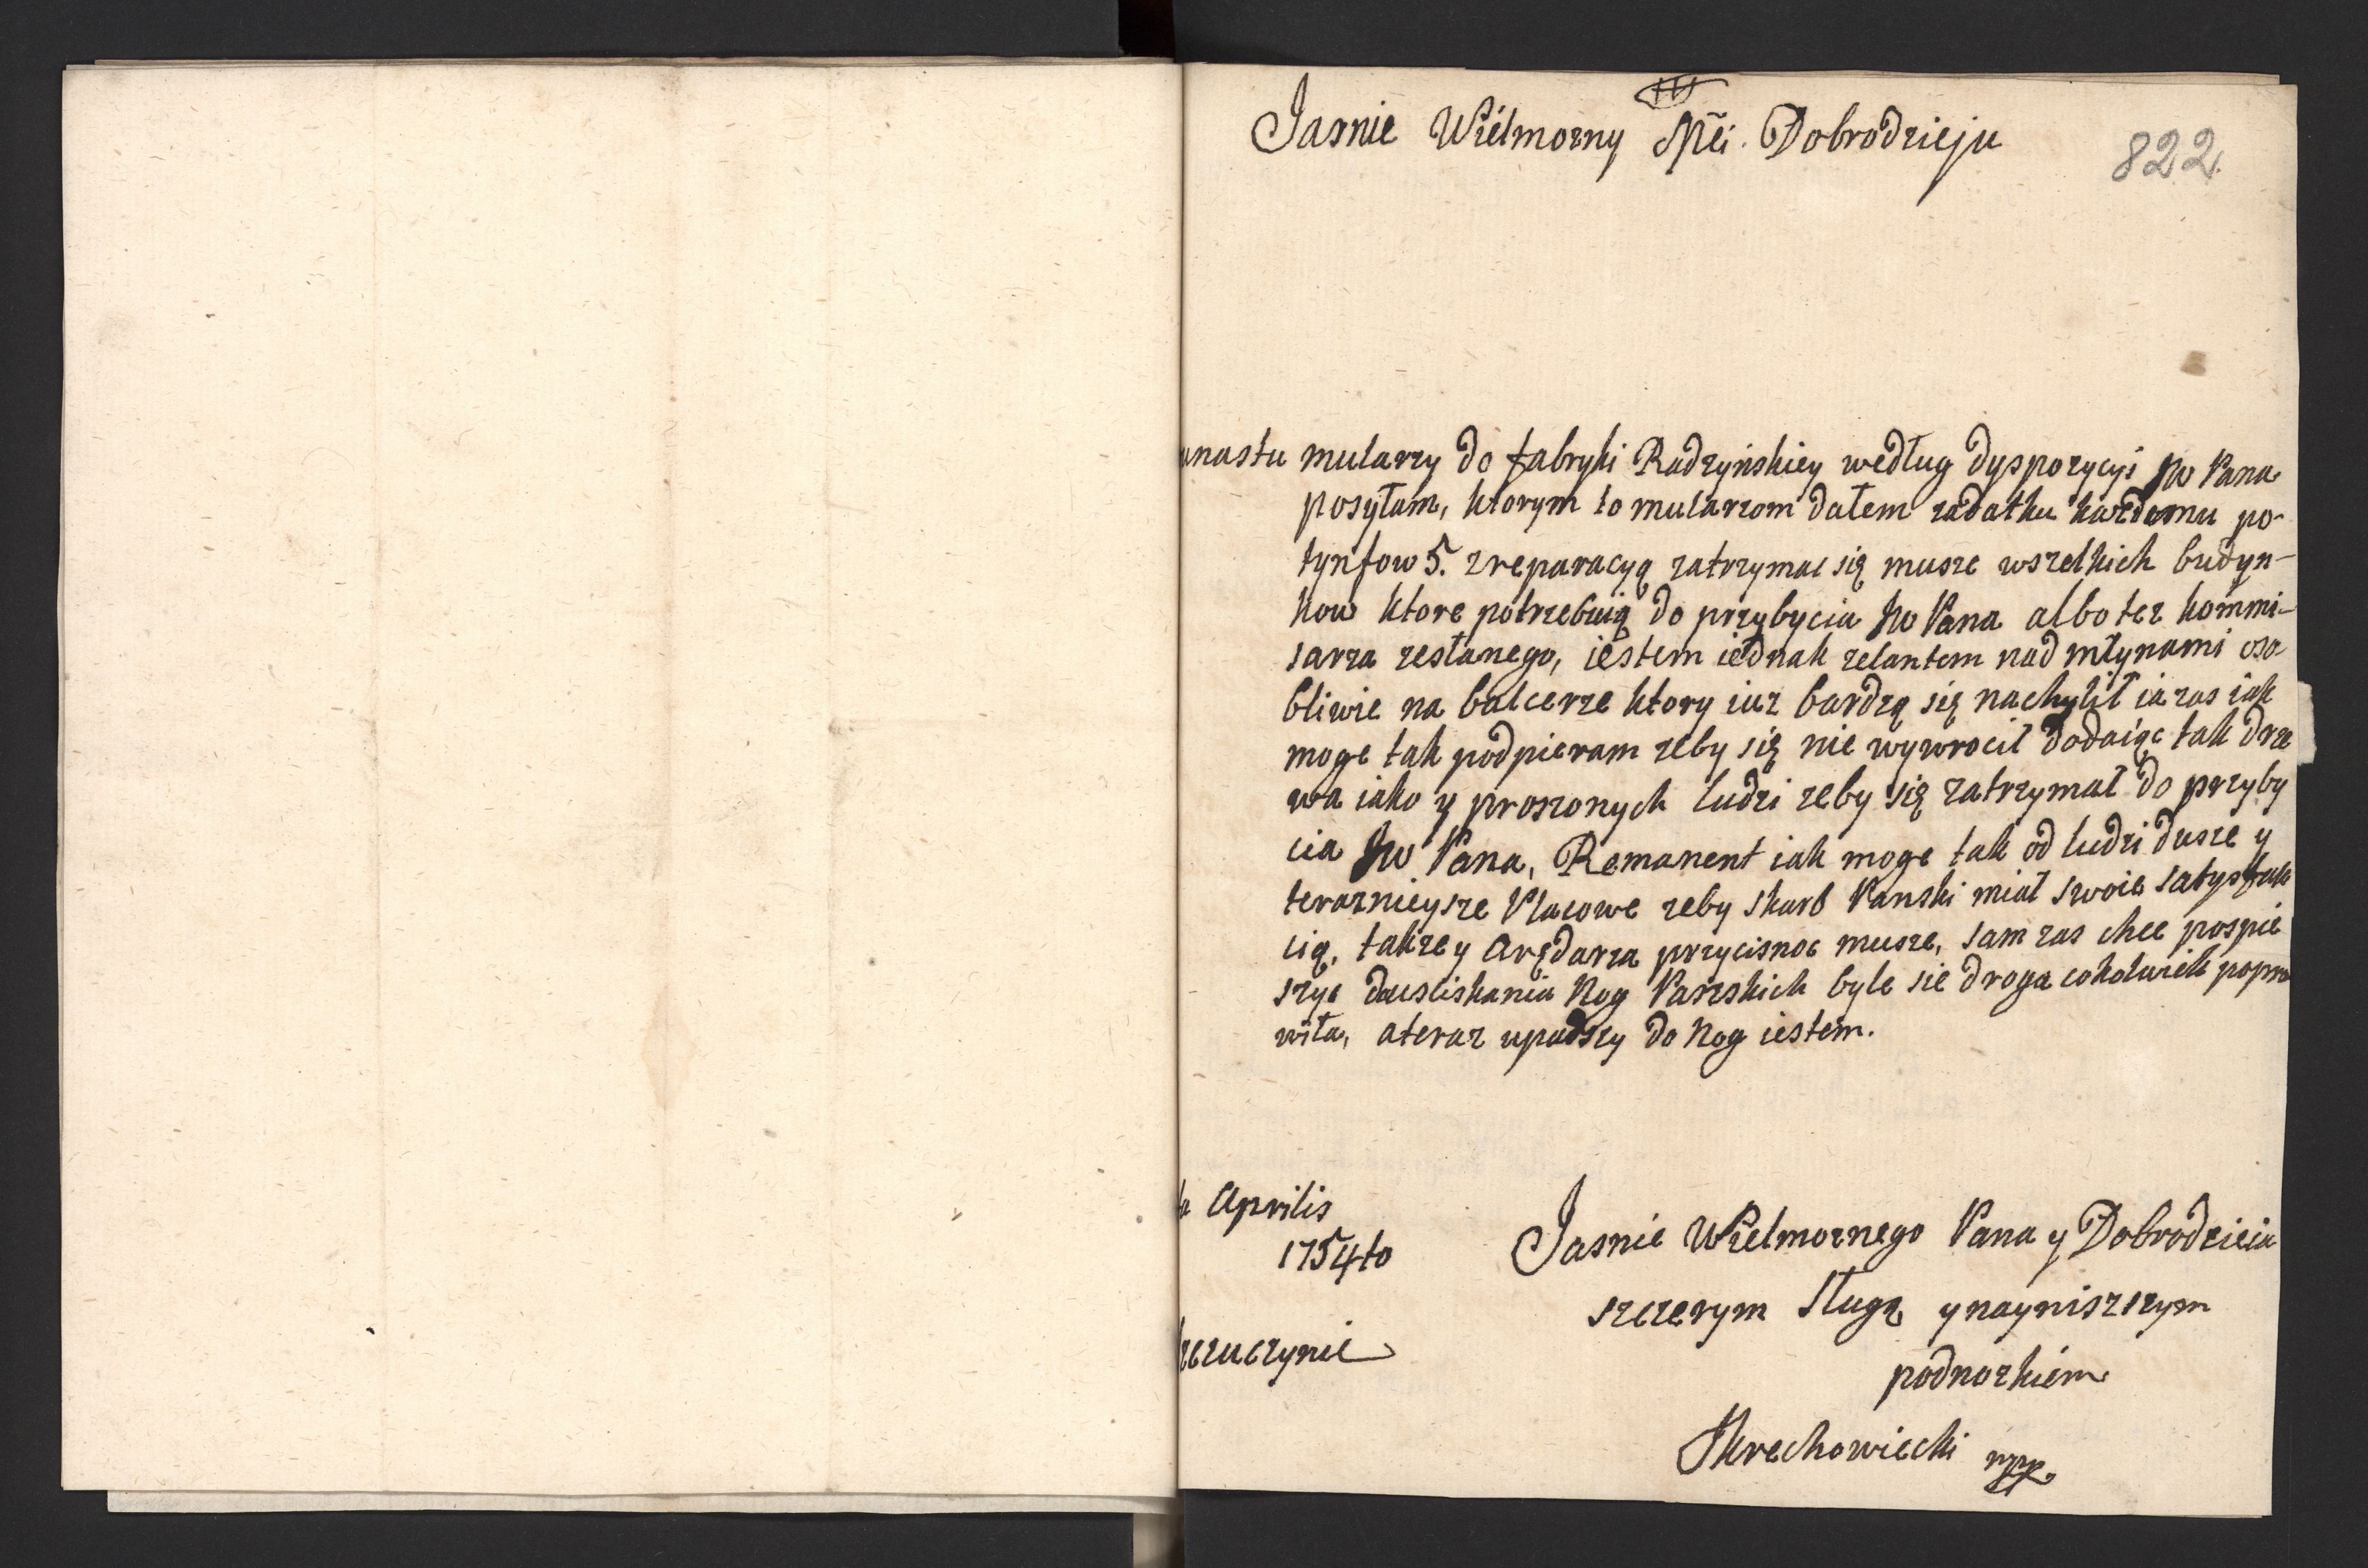 Jasnie Wielmozny Mći. Dobrodzieju
822.
unastu mularzy do fabryki Radzyńskiey według dyspozycyi Jw Pana
posyłam, ktorym to mularzom dałem zadatku kazdemu po
tynfow 5. z reparacyą zatrzymac się musze wszelkich budyn-
kow ktore potrzebuią do przybycia Jw Pana albo tez kommi-
sarza zesłanego, iestem iednak zelantem nad młynami oso
bliwie na balcerze ktory iuz bardzą się nachylił ia zas iak
moge tak podpieram zeby się nie wywrocił dodaiąc tak drze
wa iako y proszonych ludzi zeby się zatrzymał do przyby
cia Jw Pana, Remanent iak moge tak od ludzi dusze y
teraznieysze Placowe zeby skarb Panski miał swoie satysfak
cią, takze y Arędarza przycisnoc musze, sam zas chce pospie
szyc do usciskania Nog Panskich byle sie droga cokolwiek popra
wiła, a teraz upadszy do Nog iestem.
Aprilis
1754to
Jasnie Wielmoznego Pana y Dobrodzieia
szczerym Sługą y nayniszszym
zczuczynie
podnozkiem
JKrechowiecki mpp.